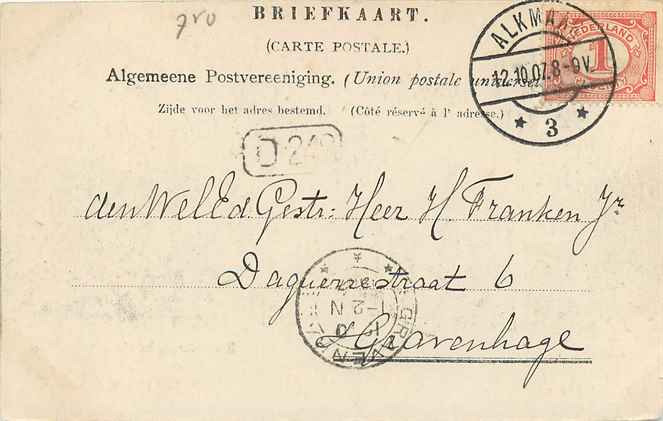 gro
BRIEFKAART.
(CARTE POSTALE.)
Algemeene Postvereeniging. (Union postale universelle.)
Zijde voor het adres bestemd. (Côté réservé à l'adresse.)
ALKMAAR
12.10.07.8-9V.
* 3 *
NEDERLAND
1
D 2
den WelEd Gestr: Heer H. Franken Jr
Daguerrestraat 6
's Gravenhage
GRAVENHAGE
1-2 N